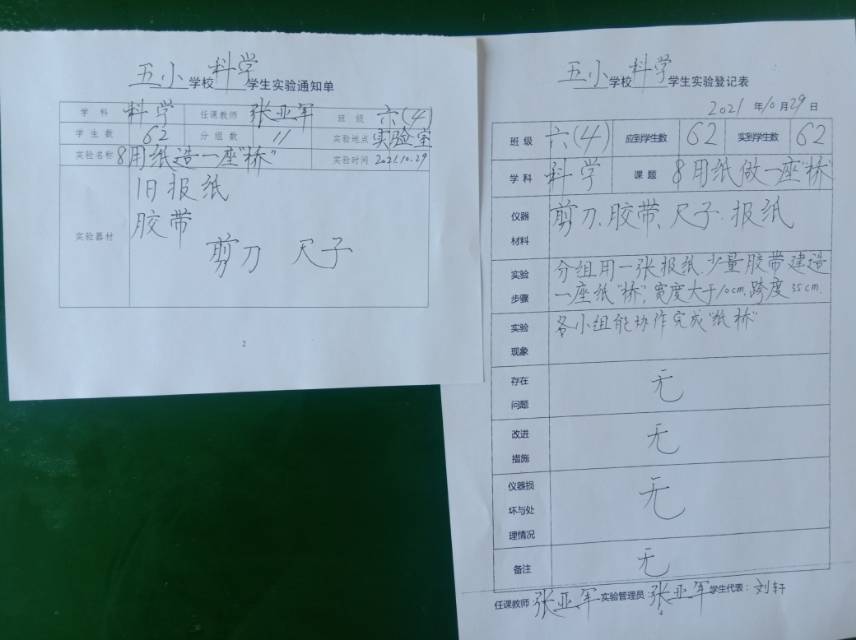 五小学校科学学生实验通知单
学科 科学 任课教师 张亚军 班级 六(4)
学生数 62 分组数 11 实验地点 实验室
实验名称 8用纸造一座"桥" 实验时间 2021.10.29
实验器材
旧报纸
胶带
剪刀 尺子
2
五小学校科学学生实验登记表
2021年10月29日
班级 六(4) 应到学生数 62 实到学生数 62
学科 科学 课题 8用纸做一座"桥"
仪器材料 剪刀、胶带、尺子、报纸
实验步骤 分组用一张报纸.少量胶带建造
一座纸"桥",宽度大于10cm,跨度35cm.
实验现象 各小组能协作完成"纸桥"
存在问题 无
改进措施 无
仪器损坏与处理情况 无
备注 无
任课教师 张亚军 实验管理员:张亚军 学生代表:刘轩